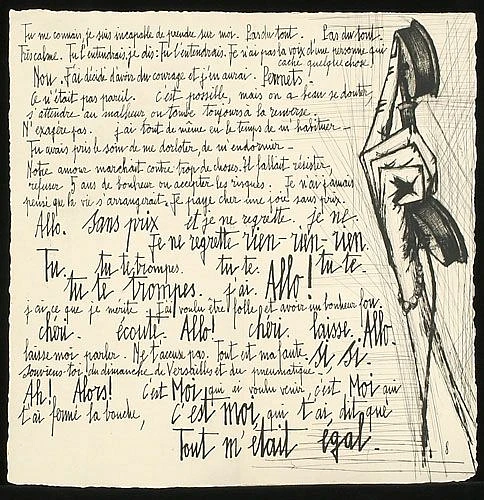 Tu me connais, je suis incapable de prendre sur moi. Pas du tout. Pas du tout.
Très calme. Tu l'entendrais, je dis: Tu l'entendrais. Je n'ai pas la voix d'une personne qui
cache quelque chose.
Non. J'ai décidé d'avoir du courage et j'en aurai. Permets_
Ce n'était pas pareil. C'est possible, mais on a beau se douter
s'attendre au malheur on tombe toujours à la renverse.
N'exagère pas. j'ai tout de même eu le temps de m'habituer_
Tu avais pris le soin de me dorloter, de m'endormir_
Notre amour marchait contre trop de choses. Il fallait résister,
refuser 5 ans de bonheur ou accepter les risques. Je n'ai jamais
pensé que la vie s'arrangerait. Je paye cher une joie sans prix.
Allo. Sans prix et je ne regrette. je ne.
Je ne regrette rien-rien-rien.
Tu. tu te trompes. tu te. tu te.
tu te trompes. j'ai. Allo!
j'ai ce que je mérite. J'ai voulu être folle et avoir un bonheur fou.
chéri. écoute. Allo! chéri. laisse. Allo.
laisse moi parler. Ne t'accuse pas. Tout est ma faute. Si, si.
Souviens-toi du dimanche de Versailles et du pneumatique.
Ah! Alors! C'est Moi qui ai voulu venir, c'est Moi qui
t'ai fermé la bouche, c'est moi, qui t'ai dit que
tout m'était égal.
8